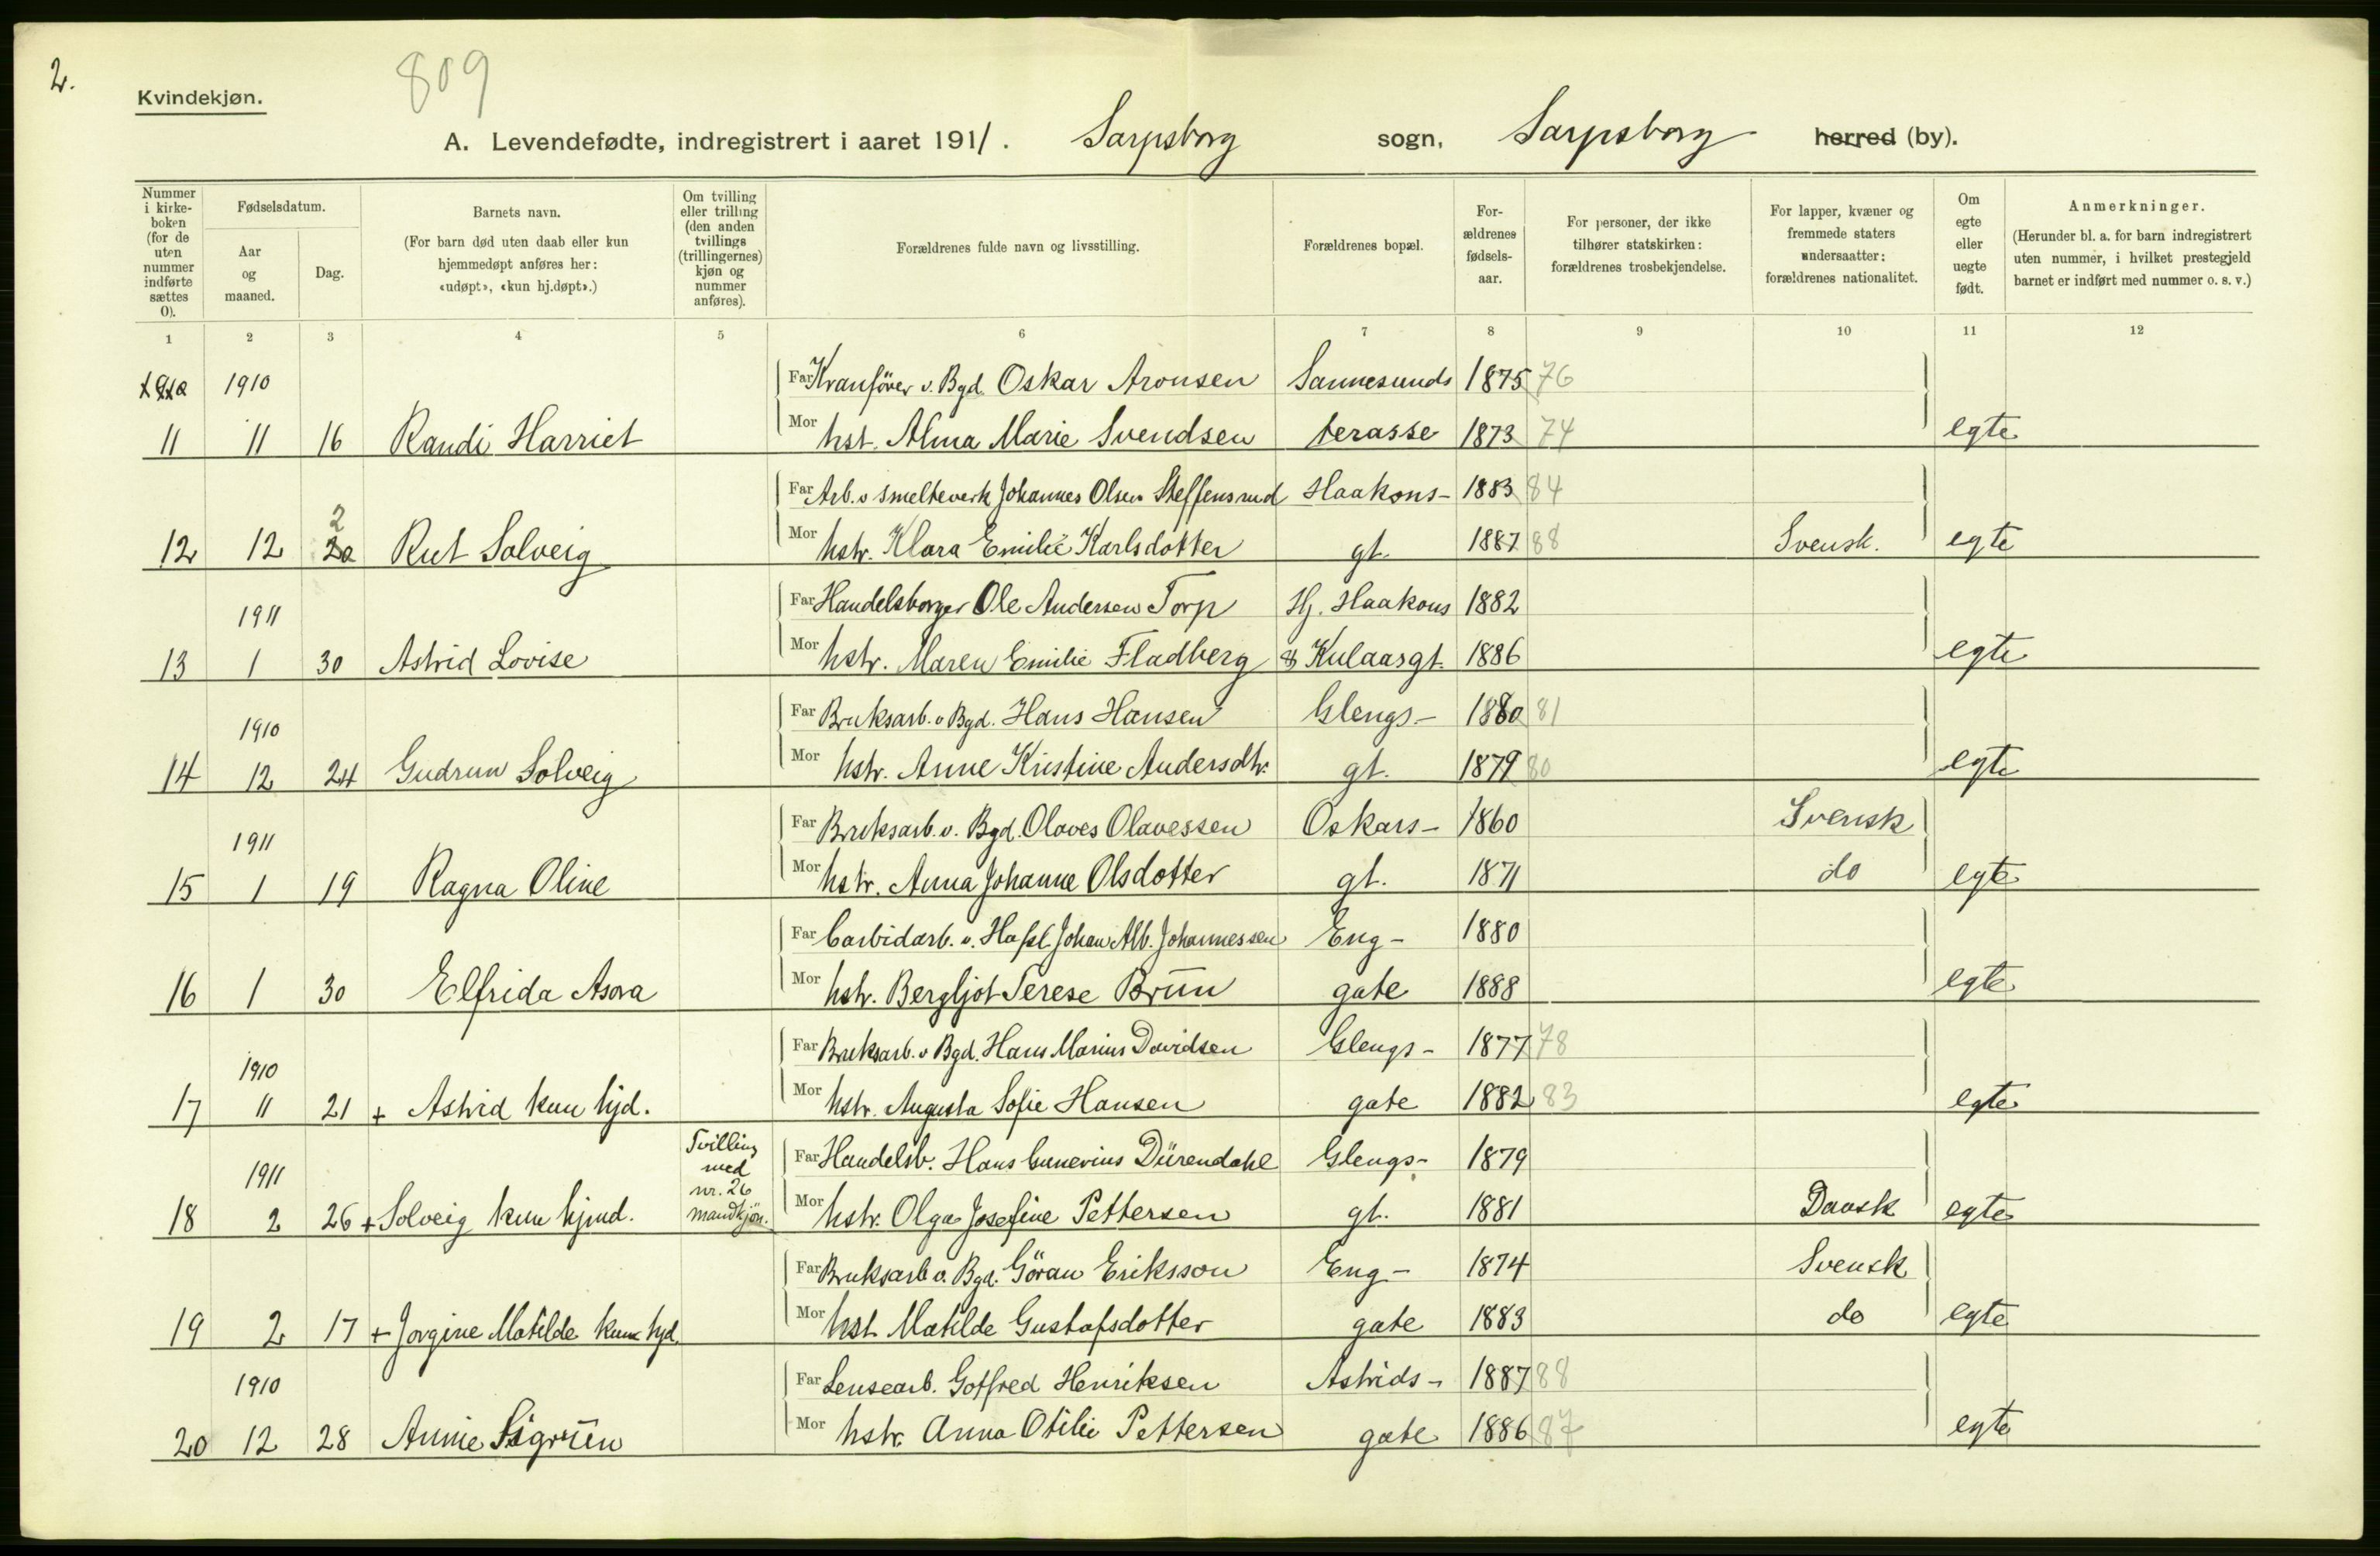 2.
809
Kvindekjøn.
A. Levendefødte, indregistrert i aaret 1911. Sarpsborg sogn, Sarpsborg herred (by).
Nummer i kirkeboken (for de uten nummer indførte sættes 0).
Fødselsdatum.
Aar og maaned.
Dag.
Barnets navn.
(For barn død uten daab eller kun hjemmedøpt anføres her: «udøpt», «kun hj.døpt».)
Om tvilling eller trilling (den anden tvillings (trillingernes) kjøn og nummer anføres).
Forældrenes fulde navn og livsstilling.
Forældrenes bopæl.
Forældrenes fødselsaar.
For personer, der ikke tilhører statskirken: forældrenes trosbekjendelse.
For lapper, kvæner og fremmede staters undersaatter: forældrenes nationalitet.
Om egte eller uegte født.
Anmerkninger.
(Herunder bl. a. for barn indregistrert uten nummer, i hvilket prestegjeld barnet er indført med nummer o. s. v.)
1 2 3 4 5 6 7 8 9 10 11 12
1910 Far Kranförer v. Bgd. Oskar Aronsen Sannesunds 1875 76
11 11 16 Randi Harriet Mor hst. Alma Marie Svendsen terasse 1873 74 egte
Far Arb. v smelteverk Johannes Olsen Steffensrud Haakons- 1883 84
12 12 2 Rut Solveig Mor hstr. Klara Emilie Karlsdotter gt. 1887 88 Svensk. egte
1911 Far Handelsborger Ole Andersen Torp Hj. Haakons 1882
13 1 30 Astrid Lovise Mor hstr. Maren Emilie Fladberg & Kulaasgt. 1886 egte
1910 Far Bruksarb. v Bgd. Hans Hansen Glengs- 1880 81
14 12 24 Gudrun Solveig Mor hstr. Anne Kristine Andersdtr. gt. 1879 80 egte
1911 Far Bruksarb. v. Bgd. Olaves Olavessen Oskars- 1860 Svensk
15 1 19 Ragna Oline Mor hstr. Anna Johanne Olsdotter gt. 1871 do egte
Far Carbidarb. v. Hafsl. Johan Alb. Johannessen Eng- 1880
16 1 30 Elfrida Asora Mor hstr. Bergljot Terese Brun gate 1888 egte
1910 Far Bruksarb. v Bgd. Hans Marius Davidsen Glengs- 1877 78
17 11 21 + Astrid kun hjd. Mor hstr. Augusta Sofie Hansen gate 1882 83 egte
1911 Tvilling med nr. 26 mandkjön. Far Handelsb. Hans Gunerius Dürendahl Glengs- 1879
18 2 26 + Solveig kun hjmd. Mor hstr. Olga Josefine Pettersen gt. 1881 Dansk egte
Far Bruksarb v. Bgd. Göran Eriksson Eng- 1874 Svensk
19 2 17 + Jorgine Matilde kun hjd. Mor hst. Matilde Gustafsdotter gate 1883 do egte
1910 Far Lensearb. Gotfred Henriksen Astrids- 1887 88
20 12 28 Annie Sigrun Mor hstr. Anna Otilie Pettersen gate 1886 87 egte